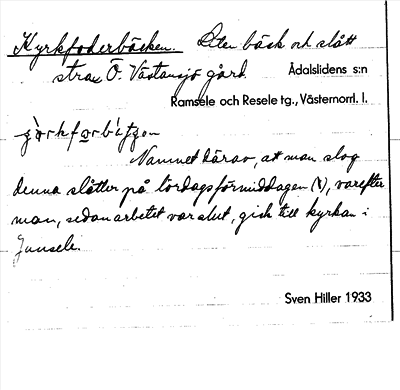 Kyrkfoderbäcken. Liten bäck och slått
strax Ö. Västansjö gård.
Ådalslidens s:n
Ramsele och Resele tg., Västernorrl. l.
Namnet därav, at man slog
denna slåtter på lördagsförmiddagen (!), varefter
man, sedan arbetet var slut, gick till kyrkan i
Junsele.
Sven Hiller 1933